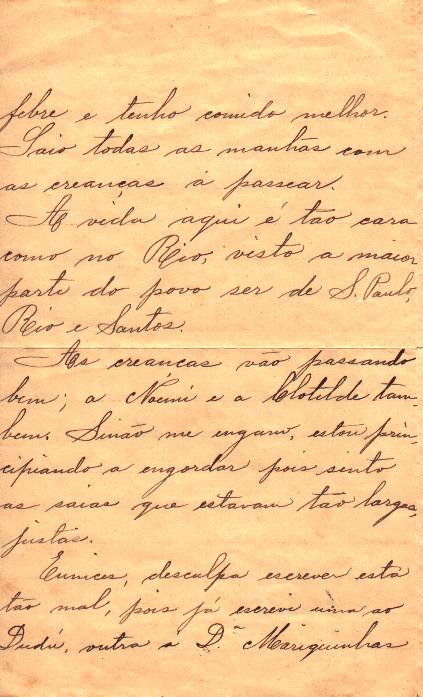 febre e tenho comido melhor.
Saio todas as manhãs com
as creanças á passear.
A vida aqui é tao cara
como no Rio, visto a maior
parte do povo ser de S. Paulo,
Rio e Santos.
As creanças vão passando
bem; a Noemi e a Clotilde tam-
bem. Sinão me engano, estou prin-
cipiando a engordar pois sinto
as saias que estavam tão largas,
justas.
Eunices, desculpa escrever esta
tão mal, pois já escrevi uma ao
Dudú, outra a D.ª Mariquinhas